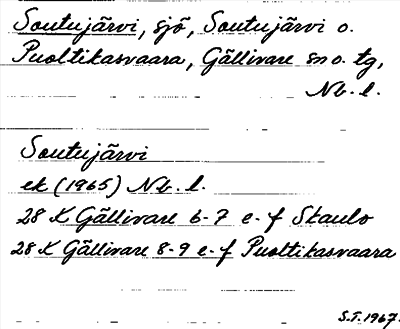 Soutujärvi, sjö, Soutujärvi o.
Puoltikasvaara, Gällivare sn o. tg,
Nb. l.
Soutujärvi
ek (1965) Nb. l.
28 K Gällivare 6-7 e-f Skaulo
28 K Gällivare 8-9 e-f Puoltikasvaara
S.T. 1967.